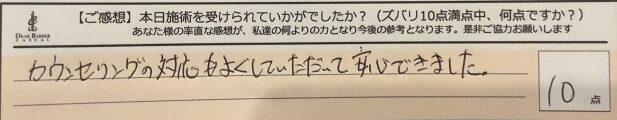 【ご感想】本日施術を受けられていかがでしたか？（ズバリ10点満点中、何点ですか？）
DEAR BARBER
CASUAL
あなた様の率直な感想が、私達の何よりの力となり今後の参考となります。是非ご協力お願いします
カウンセリングの対応もよくしていただいて安心できました。
10点